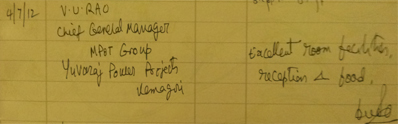 4/7/12
V.U. RAO
Chief General Manager
Group
Yuvaraj Power Projects
Excellent room facilities,
reception & food.